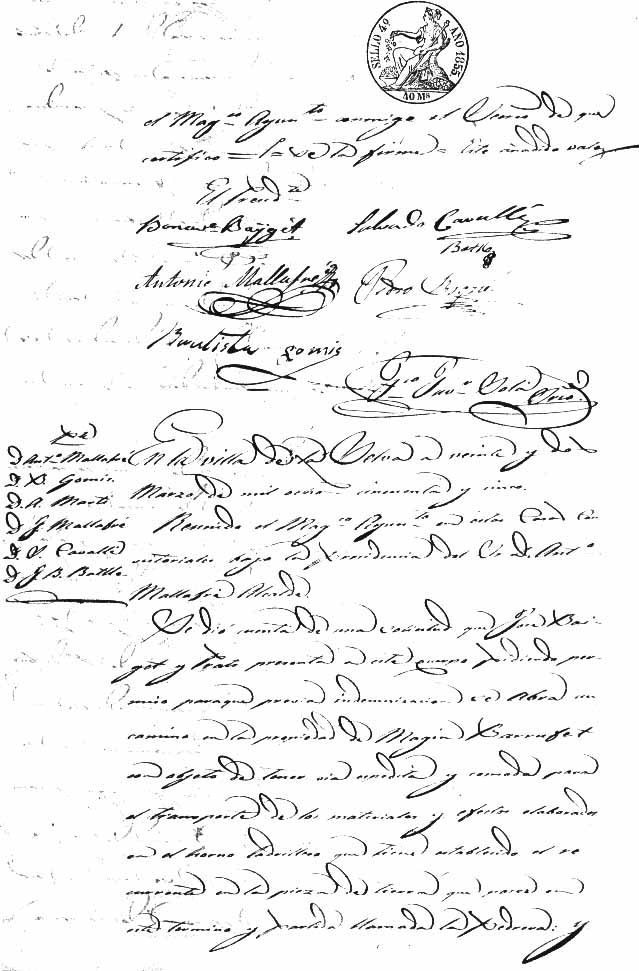 SELLO 4º AÑO 1855.
40 Ms
el Mag.co Ayun.to conmigo el Srio de que
certifico = = la firma = Este añadido vale
El Presid.te
Bonav.a Bajget Salvado Cavallé
Batlle
Antonio Mallafré Pedro
Bautista Gomis
Fco Jav.r Solá Srio
D Ant.o Mallafré
D B. Gomis
D A. Marti
D J. Mallafré
D S. Cavallé
D J. B. Batlle
En la villa de la Selva a veinte y dos
Marzo de mil ocho cincuenta y cinco.
Reunido el Mag.co Ayun.to en estas Casas Con
sistoriales bajo la presidencia del Sr. D. Ant.o
Mallafré Alcalde
Se dió cuenta de una solicitud que José Baj-
get y Prats presenta a este cuerpo pidiendo per-
miso paraque previa indemnizacion se abra un
camino en la propiedad de Magin Barrufet
con objeto de tener via espedita y comoda para
el transporte de los materiales y efectos elaborados
en el horno ladrillero que tiene establecido el re
currente en la pieza de tierra que posee en
este termino y partida llamada la Pedrera: y